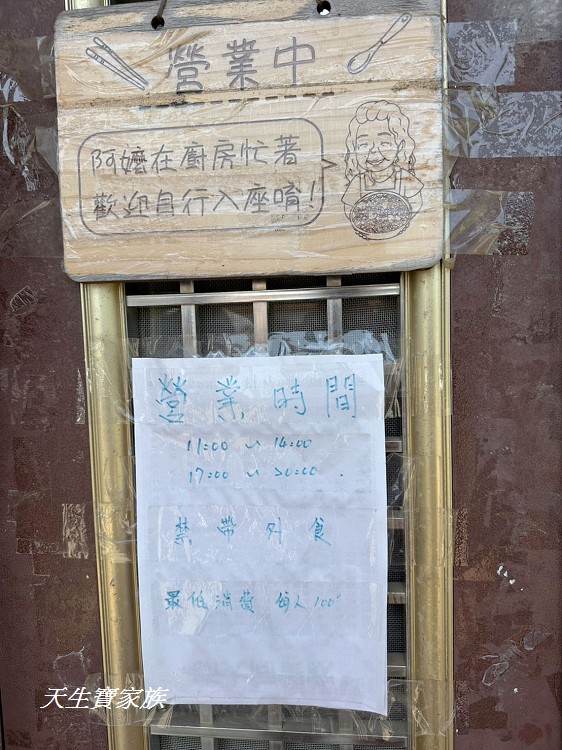 營業中
阿嬤在廚房忙著
歡迎自行入座唷!
營業時間
11:00 ~ 14:00
17:00 ~ 20:00.
禁帶外食
最低消費 每人100
天生寶家族